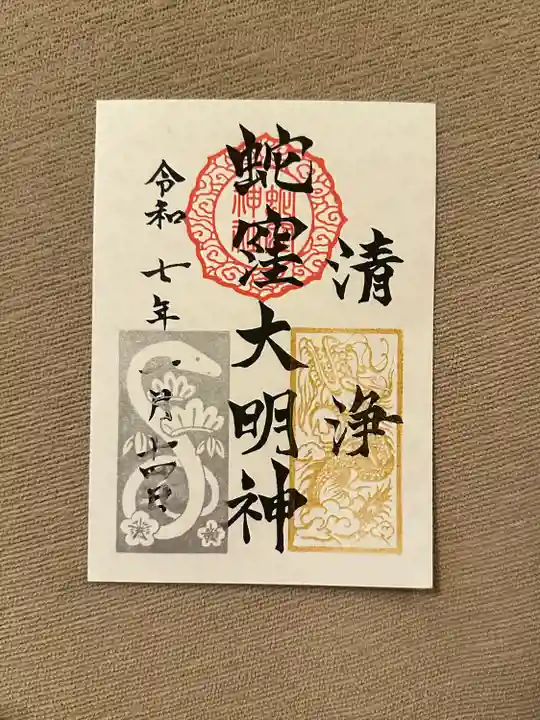 清浄
蛇窪大明神
令和七年一月十四日